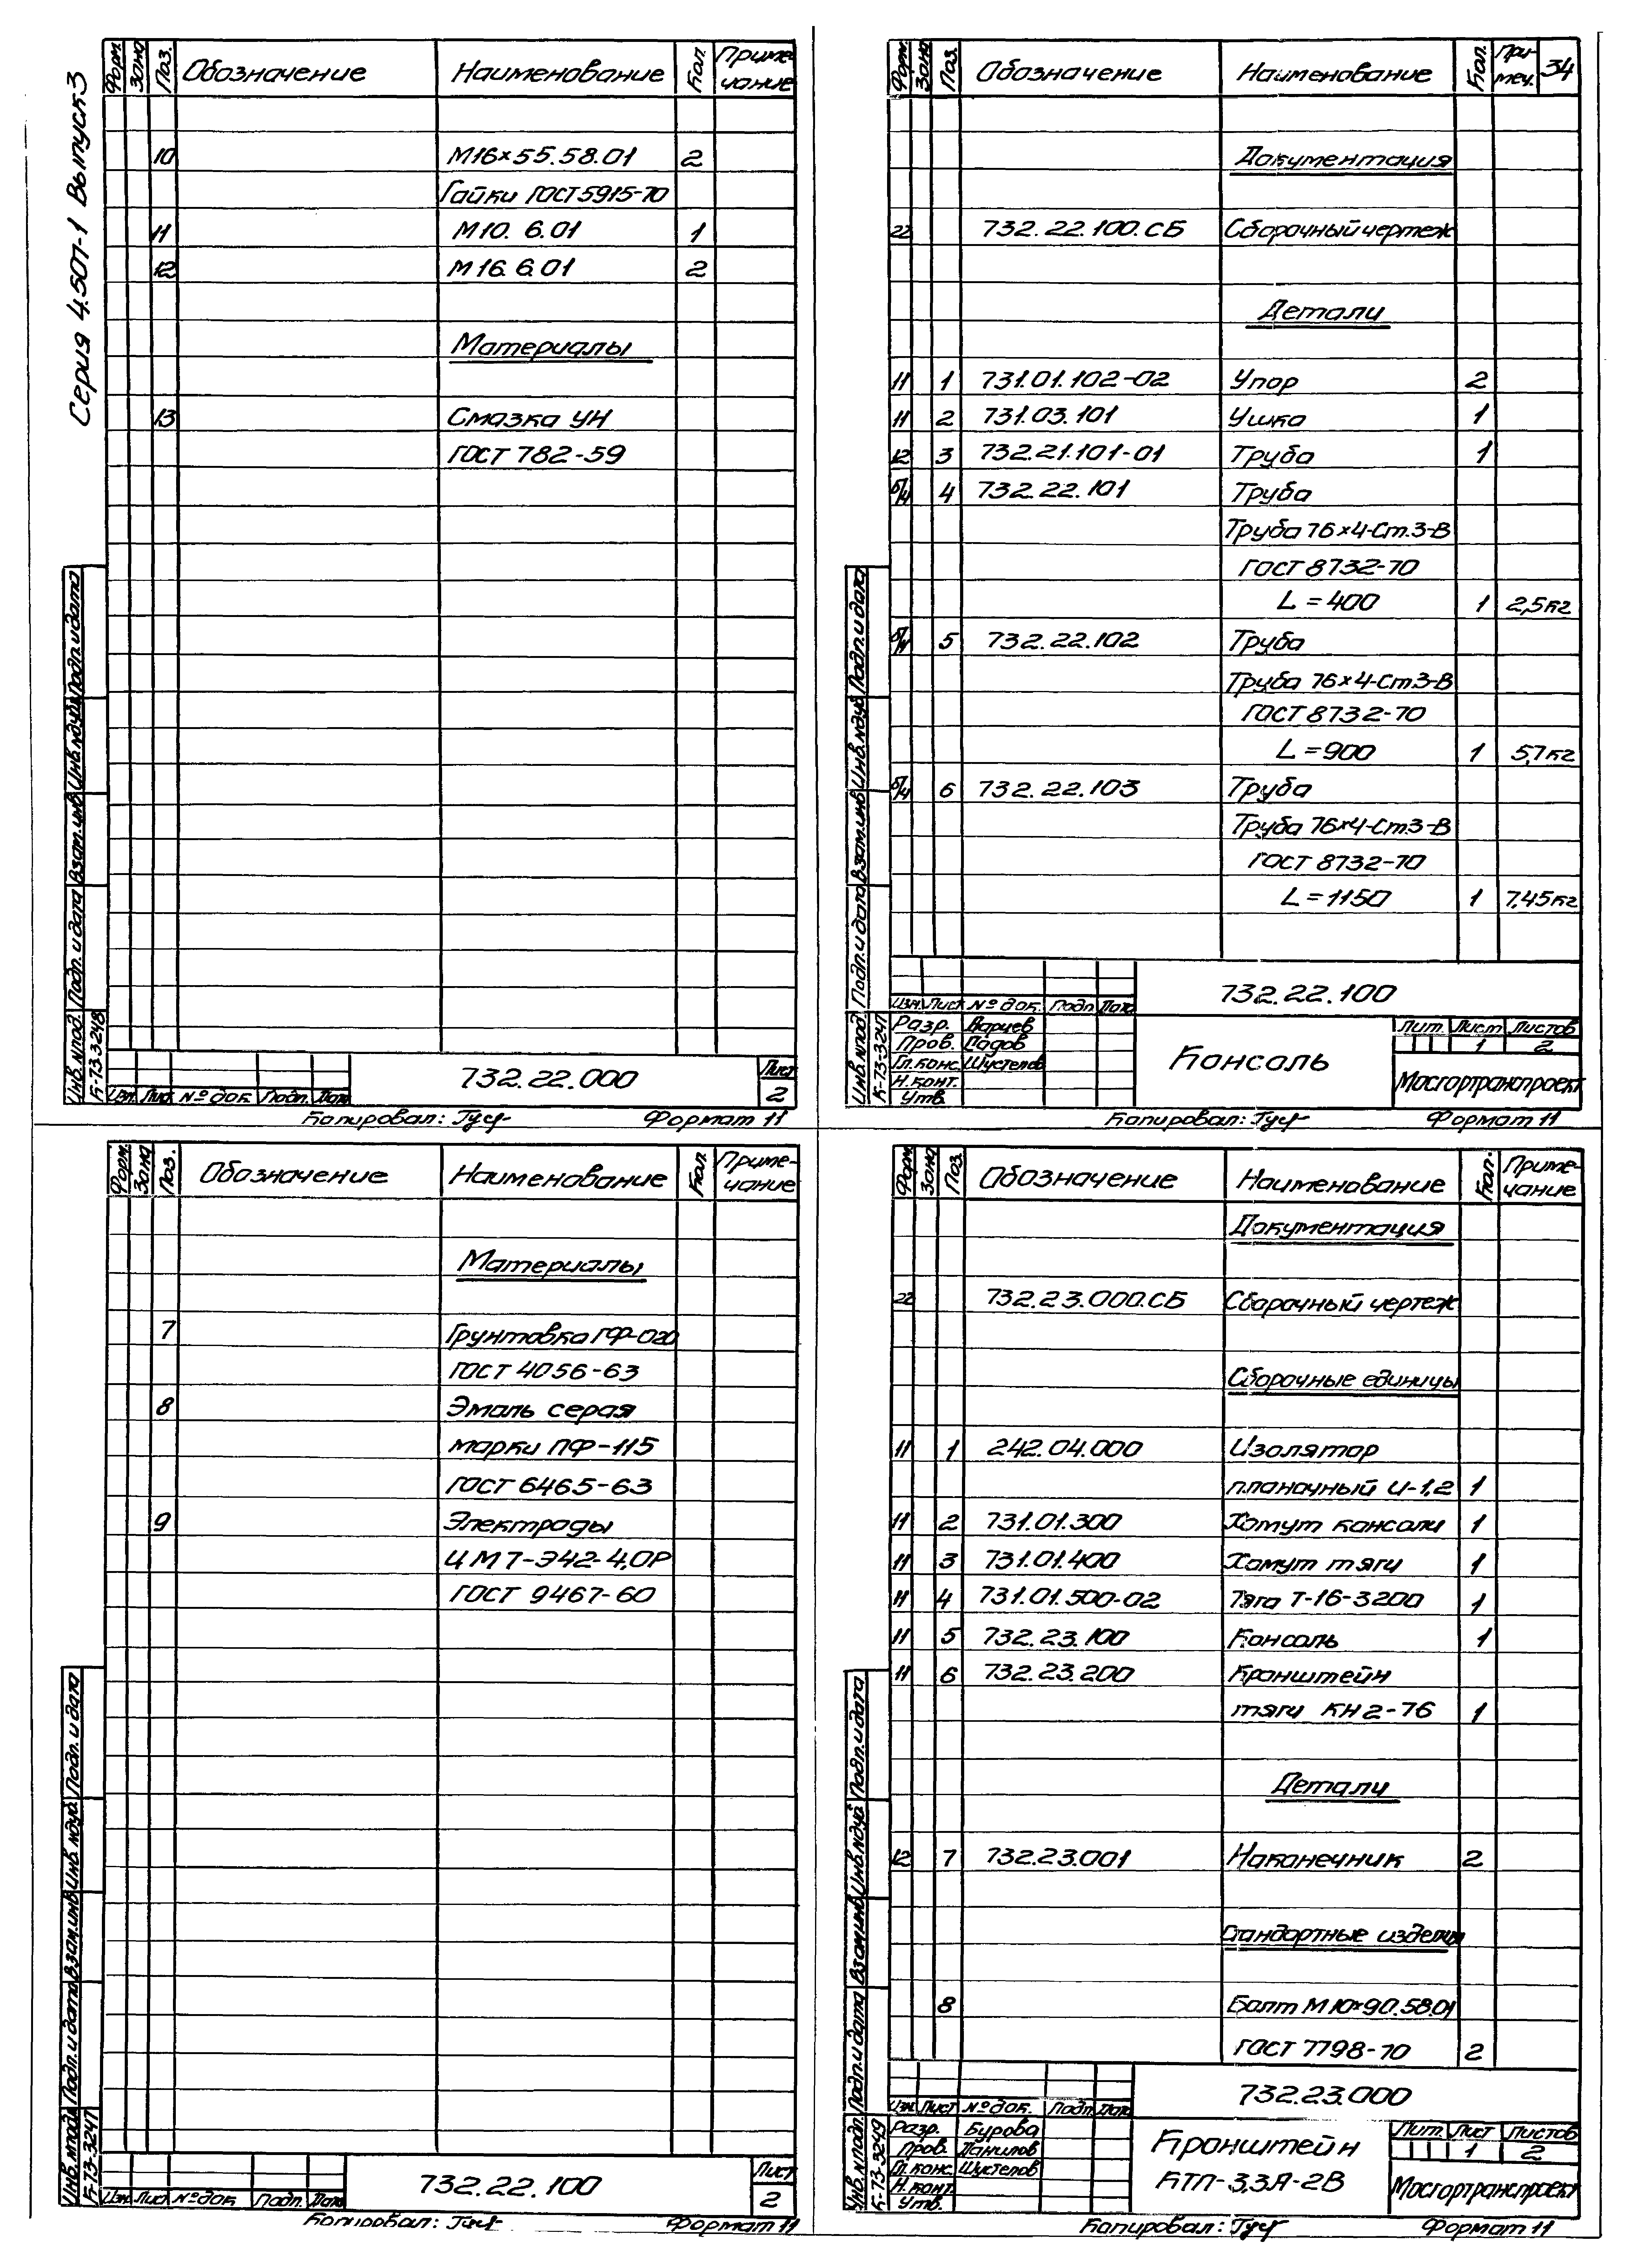 Серия 4.507-1 Выпуск 3
Форм. Зона Поз. Обозначение Наименование Кол. Приме-
чание
10 М16×55.58.01 2
Гайки ГОСТ 5915-70
11 М10. 6.01 1
12 М16. 6.01 2
Материалы
13 Смазка УН
ГОСТ 782-59
Инв.№подл. Подп. и дата Взам.инв. Инв.№дубл. Подп. и дата
К-73-3248
Изм. Лист № док. Подп. Дата
732.22.000
Лист
2
Копировал: Формат 11
Форм. Зона Поз. Обозначение Наименование Кол. При-
меч. 34
Документация
22 732.22.100.СБ Сборочный чертеж
Детали
11 1 731.01.102-02 Упор 2
11 2 731.03.101 Ушко 1
12 3 732.21.101-01 Труба 1
б/ч 4 732.22.101 Труба
Труба 76×4-Ст.3-В
ГОСТ 8732-70
L=400 1 2,5кг
б/ч 5 732.22.102 Труба
Труба 76×4-Ст3-В
ГОСТ 8732-70
L=900 1 5,7кг
б/ч 6 732.22.103 Труба
Труба 76×4-Ст3-В
ГОСТ 8732-70
L=1150 1 7,45кг
Инв.№подл. Подп. и дата Взам.инв. Инв.№дубл. Подп. и дата
К-73-3247
732.22.100
Изм. Лист № док. Подп. Дата
Разр.
Пров.
Гл.конс. Шустелов
Н.конт.
Утв.
Консоль
Лит. Лист Листов
1 2
Мосгортранспроект
Копировал: Формат 11
Форм. Зона Поз. Обозначение Наименование Кол. Приме-
чание
Материалы
7 Грунтовка ГФ-020
ГОСТ 4056-63
8 Эмаль серая
марки ПФ-115
ГОСТ 6465-63
9 Электроды
ЦМ7-Э42-4,0Р
ГОСТ 9467-60
Инв.№подл. Подп. и дата Взам.инв. Инв.№дубл. Подп. и дата
К-73-3247
Изм. Лист № док. Подп. Дата
732.22.100
Лист
2
Копировал: Формат 11
Форм. Зона Поз. Обозначение Наименование Кол. Приме-
чание
Документация
22 732.23.000.СБ Сборочный чертеж
Сборочные единицы
11 1 242.04.000 Изолятор
планочный И-1,2 1
11 2 731.01.300 Хомут консоли 1
11 3 731.01.400 Хомут тяги 1
11 4 731.01.500-02 Тяга Т-16-3200 1
11 5 732.23.100 Консоль 1
11 6 732.23.200 Кронштейн
тяги КН2-76 1
Детали
12 7 732.23.001 Наконечник 2
Стандартные изделия
8 Болт М10×90.58.01
ГОСТ 7798-70 2
Инв.№подл. Подп. и дата Взам.инв. Инв.№дубл. Подп. и дата
К-73-3249
732.23.000
Изм. Лист № док. Подп. Дата
Разр. Бурова
Пров. Данилов
Гл.конс. Шустелов
Н.конт.
Утв.
Кронштейн
КТП-3,3А-2В
Лит. Лист Листов
1 2
Мосгортранспроект
Копировал: Формат 11